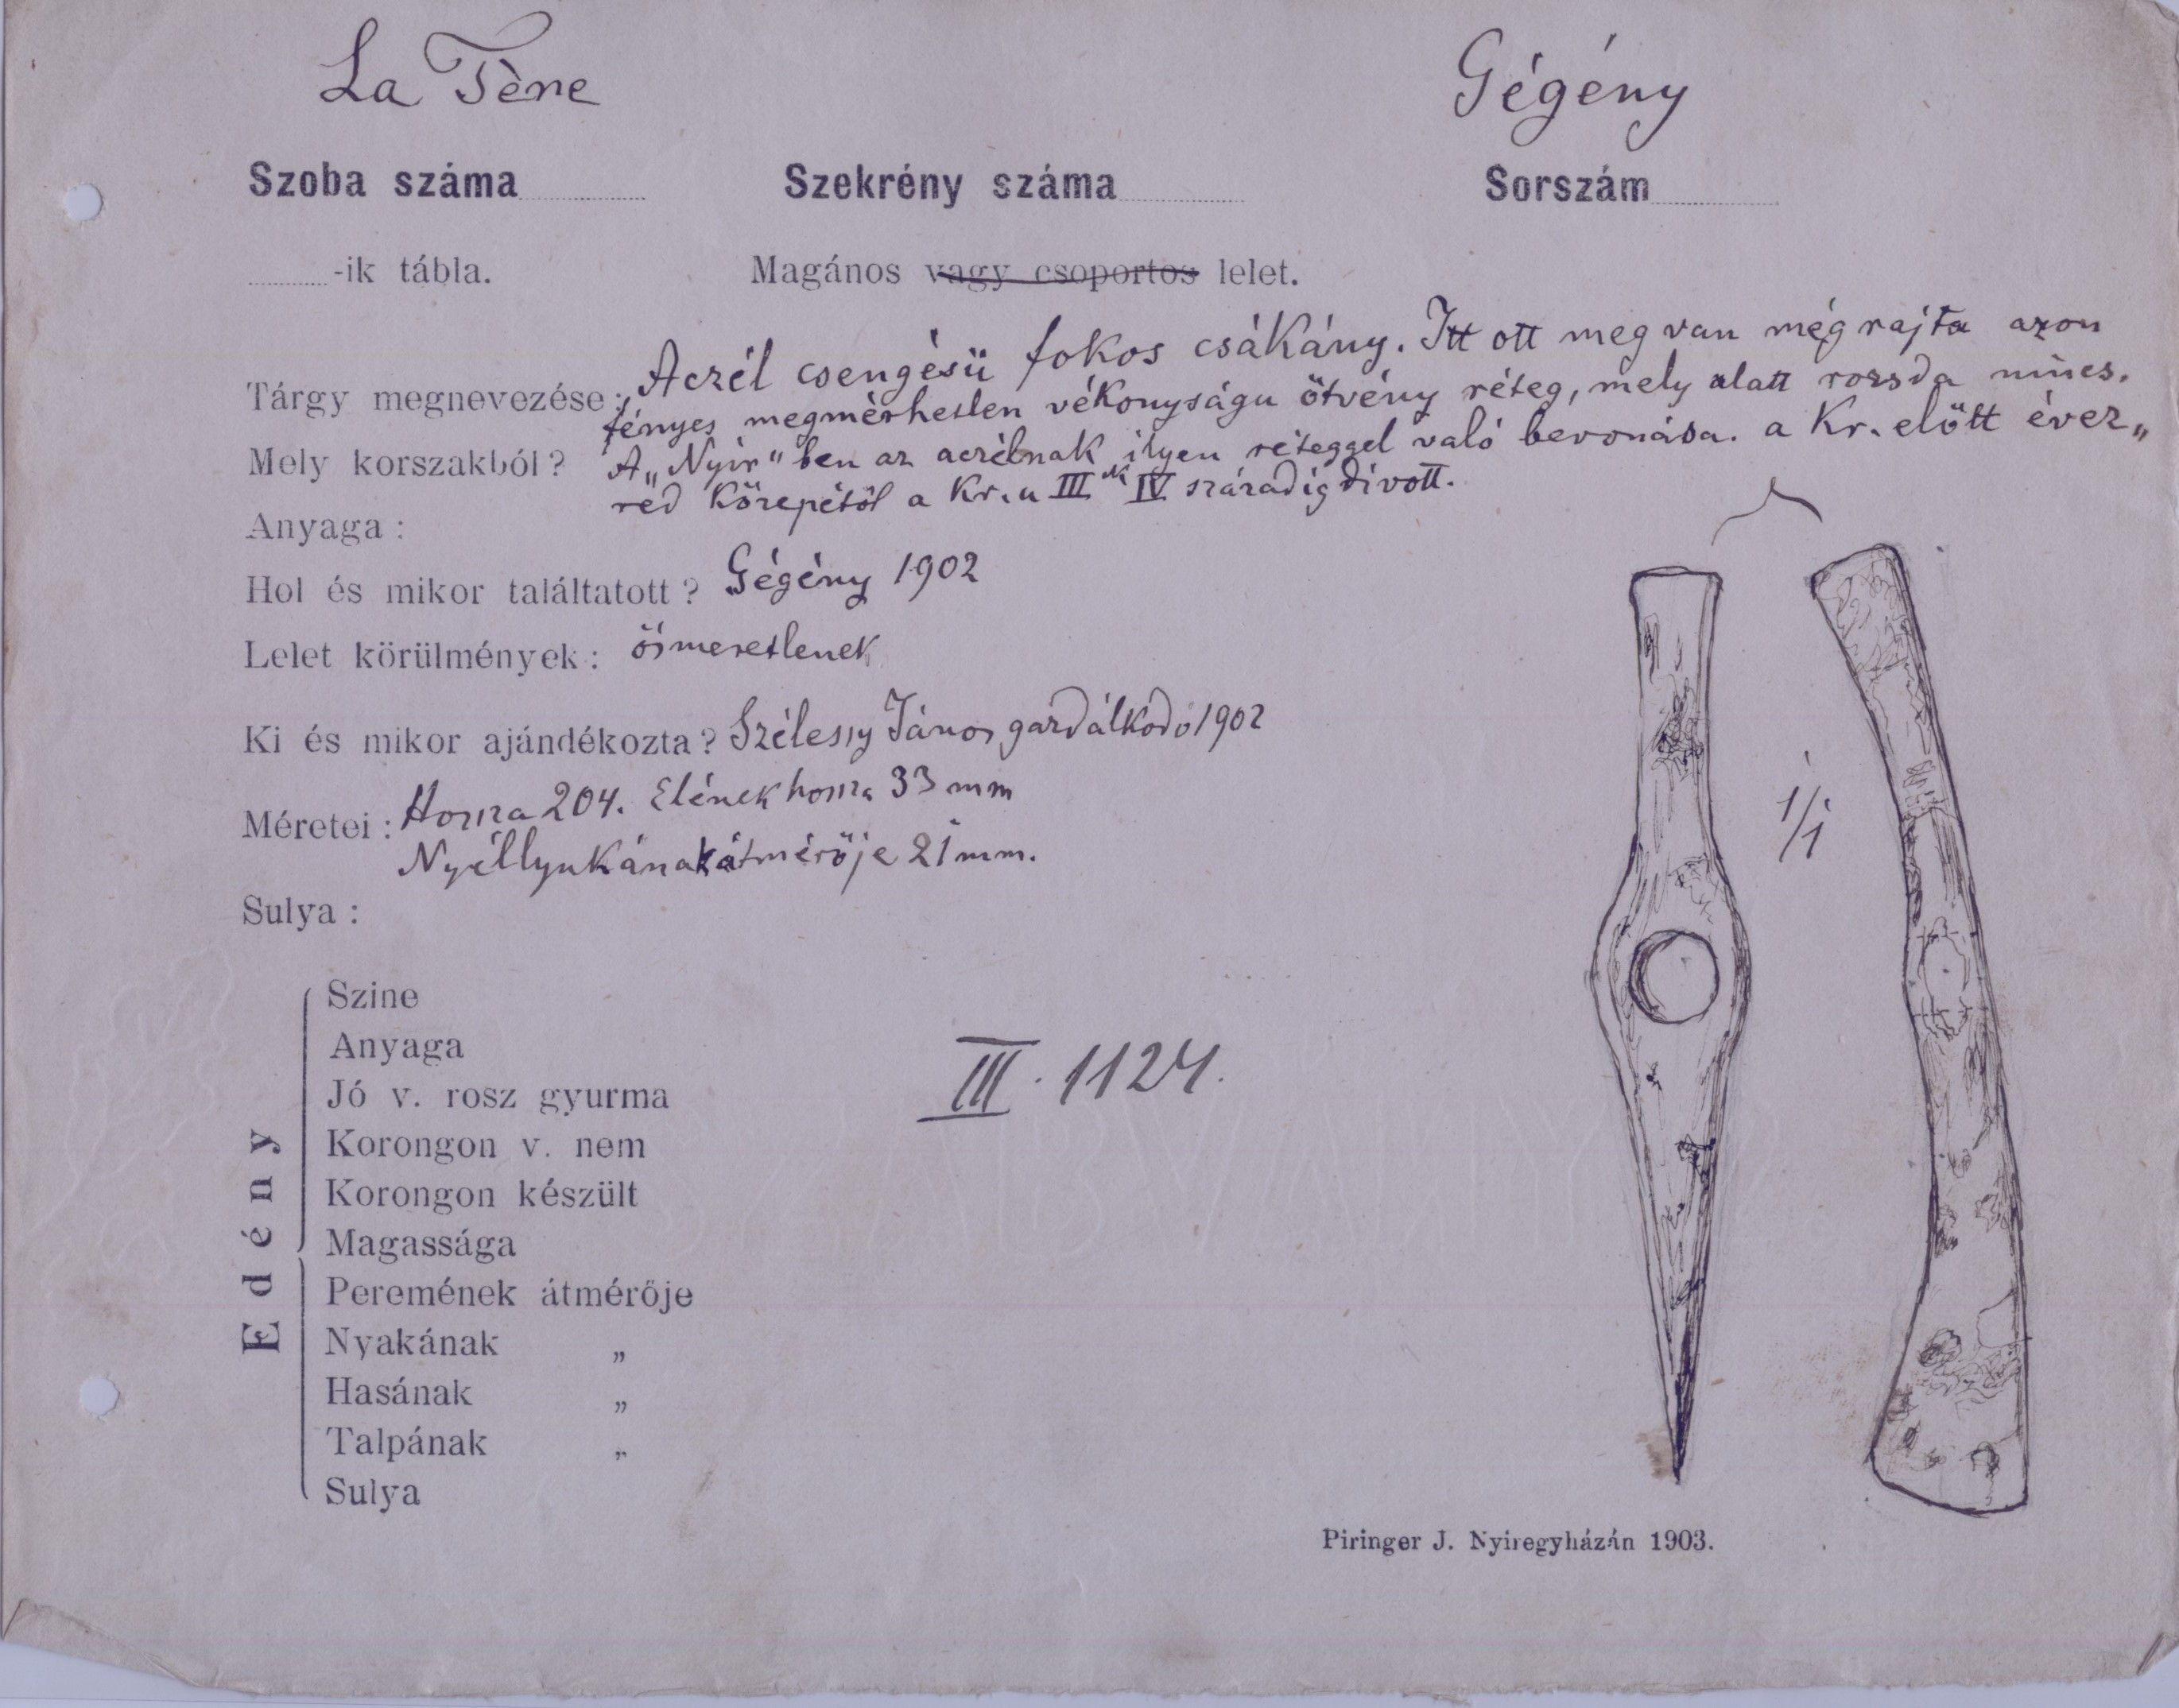 La Tène
Gégény
Szoba száma
Szekrény száma
Sorszám
-ik tábla.
Magános vagy csoportos lelet.
Tárgy megnevezése: Aczél csengésü fokos csákány. Itt ott meg van még rajta azon
fényes megmérhetlen vékonyságu ötvény réteg, mely alatt rozsda nincs.
Mely korszakból? A „Nyir" ben az aczélnak ilyen réteggel való bevonása. a Kr. előtt évez„
red közepétől a Kr. u III IV századig dívott.
Anyaga:
Hol és mikor találtatott? Gégény 1902
Lelet körülmények: ösmeretlenek
Ki és mikor ajándékozta? János gazdálkodó 1902
Méretei: Hossza 204. Elének hossza 33 mm
Nyéllyukának átmérője 21 mm.
Sulya:
1/1
Edény
Szine
Anyaga
Jó v. rosz gyurma
Korongon v. nem
Korongon készült
Magassága
Peremének átmérője
Nyakának „
Hasának „
Talpának „
Sulya
III. 1124.
Piringer J. Nyiregyházán 1903.